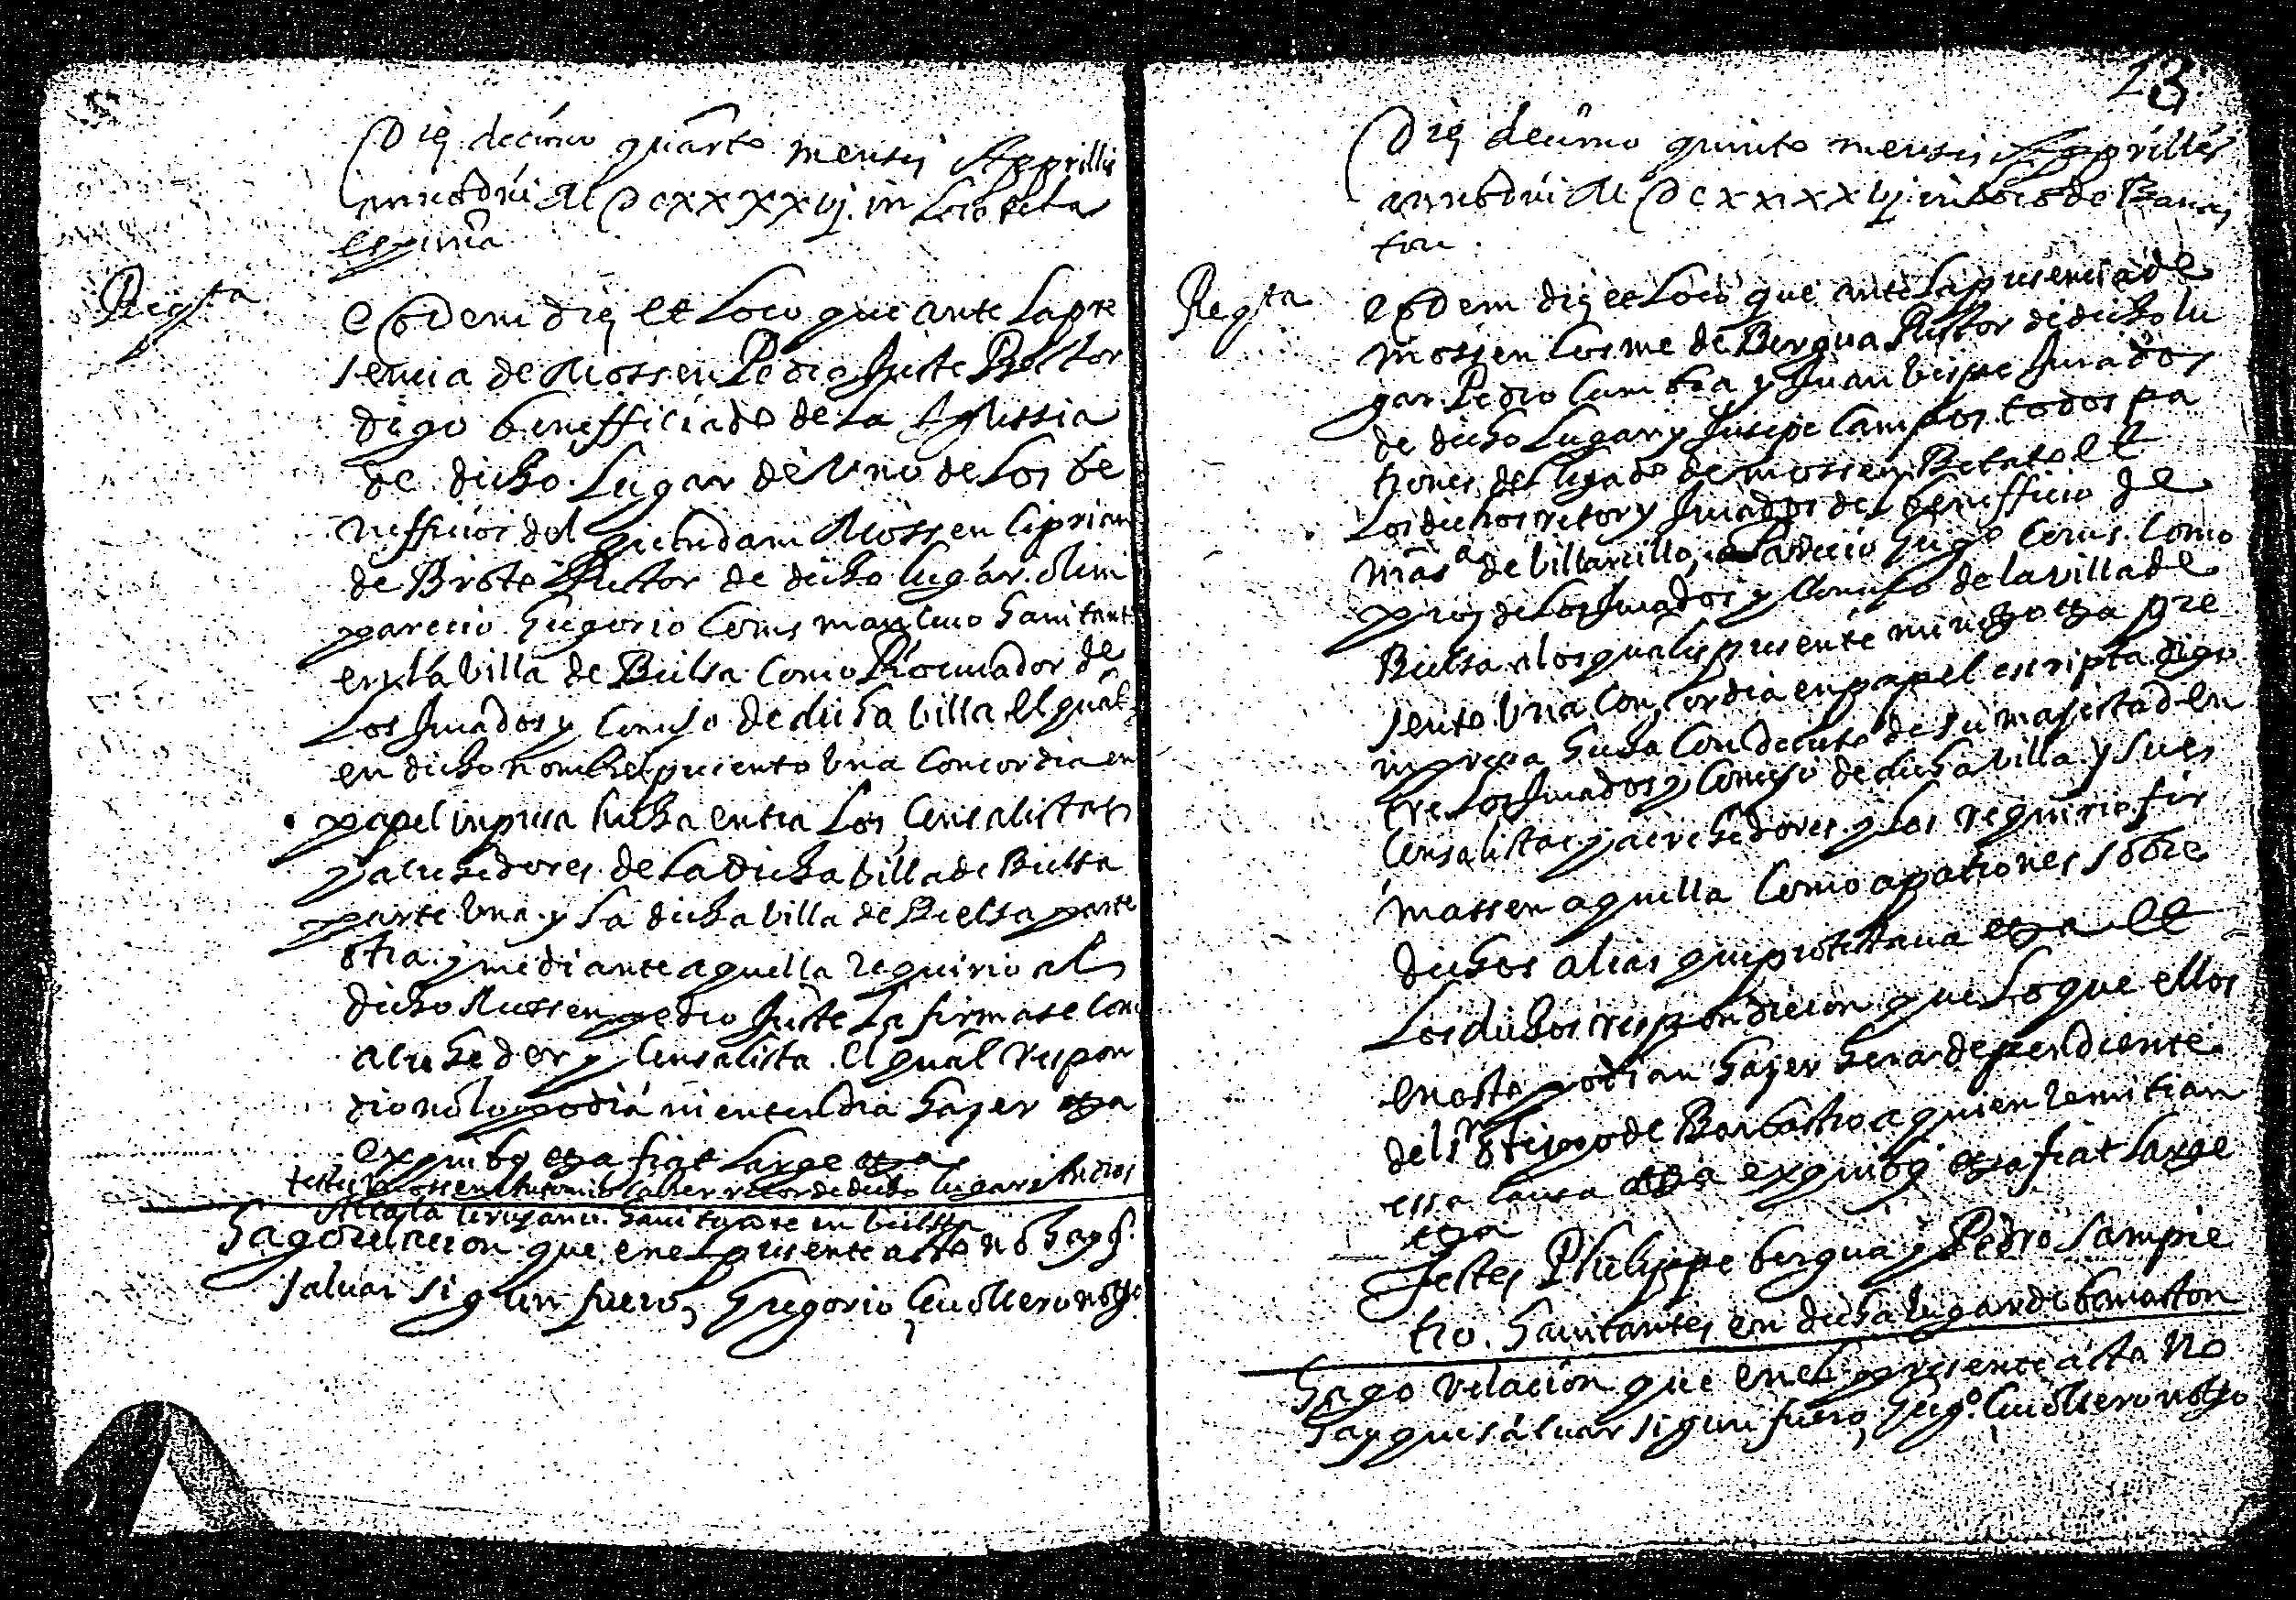 Die decimo quarto mensis Apprillis
anno dni M DCXXXXVj. in Loco de la
espuña
Reqta
eodem die et Loco que ante la pre
sencia de Mossen Pedro Juste Rector
digo benefficiado de la Iglessia
de dicho Lugar de uno de Los be
nefficios del quondam Mossen Ciprian
de Broto Rector de dicho lugar olim
parecio Gregorio Cerus mancevo havitante
en la villa de Bielsa como Procurador de
Los Jurados y Concejo de dicha villa el qual
en dicho nombre presento una Concordia en
papel inpresa hecha entra Los Censalistas
y acrehedores de la dicha villa de Bielsa
parte una y la dicha villa de Bielsa parte
otra y mediante aquella requirio al
dicho Mossen pedro Juste la firmase como
acrehedor y Censalista. el qual respon
dio no lo podia ni entendia hazer etza
ex quibus etza fiat large etza
testes Mossen Antonio rector de dicho lugar
Alcala cirujano. havitante en bielsa
Hago relacion que en el presente acto no hay q.
salvar sigun fuero, Gregorio notto
13
Die decimo quinto mensis Apprillis
anno dni M DCXXXXVj in Loco de Banas
ton.
Reqta
eodem die et Loco que ante la presencia de
mossen Cosme de Bergua Rector de dicho lu
gar Pedro Cambra y Juan bispe Jurados
de dicho Lugar y Jusepe Campos todos pa
trones del legado de mossen Betato et
Los dichos retor y Jurados del benefficio de
mas.a de Villarcillo, parecio Greg.o Cerus. Como
pror de Los Jurados y Concejo de la villa de
Bielsa a los quales presente mi notto etza pre
sento una Concordia en papel escripta digo
inpresa hecha con decreto de su magestad en
tre Los Jurados y Concejo de dicha villa y sus
Censalistas y acrehedores y Los requirio fir
massen aquella Como a patrones sobre
dichos alias que protestava etza et
Los dichos respondieron que Lo que ellos
en esto podian hazer hera dependiente
del sr Obispo de Barbastro a quien remitian
essa causa etza ex quibus etza fiat large
etza
Testes Phelippe bergua y Pedro Sampie
tro. havitantes en dicho lugar de banaston
Hago relacion que en el presente acto no
hay que salvar sigun fuero, Greg.o notto